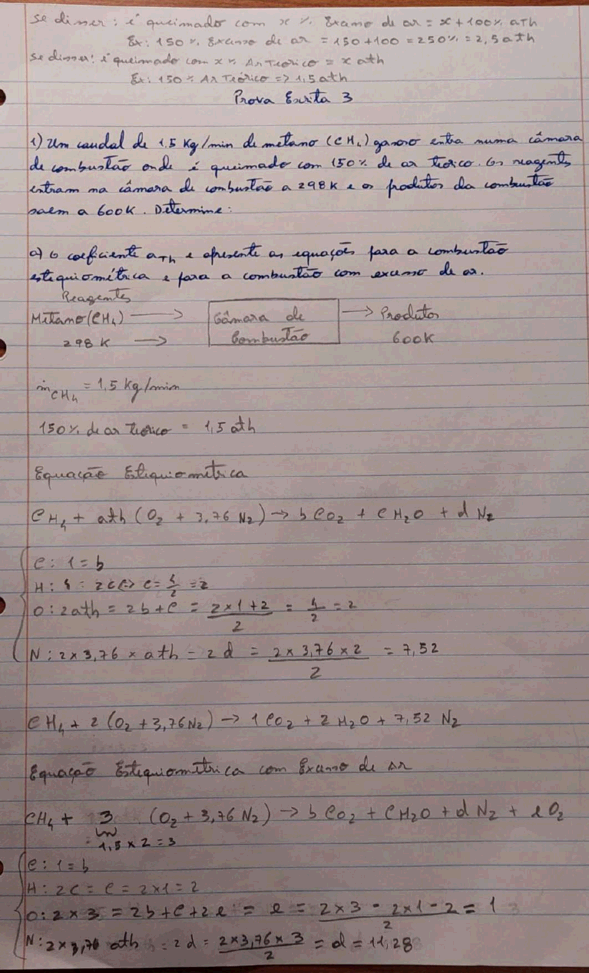 se disser: é queimado com x % Excesso de ar = x + 100% ath
Ex: 150% Excesso de ar = 150 + 100 = 250% = 2,5 ath
se disser: é queimado com x % Ar Teórico = x ath
Ex: 150% Ar Teórico => 1,5 ath
Prova Escrita 3
1) Um caudal de 1,5 Kg/min de metano (CH4) gasoso entra numa câmara
de combustão onde é queimado com 150% de ar teórico. Os reagentes
entram na câmara de combustão a 298K e os produtos da combustão
saem a 600K. Determine:
a) O coeficiente aTh e apresente as equações para a combustão
estequiométrica e para a combustão com excesso de ar.
Reagentes
Metano (CH4) → Câmara de → Produtos
298 K → Combustão 600K
ṁCH4 = 1,5 Kg/min
150% de ar teórico = 1,5 ath
Equação Estequiométrica
CH4 + ath (O2 + 3,76 N2) → b CO2 + c H2O + d N2
C: 1 = b
H: 4 = 2c <=> c = 4/2 = 2
O: 2ath = 2b + c = (2×1+2)/2 = 4/2 = 2
N: 2 × 3,76 × ath = 2d = (2 × 3,76 × 2)/2 = 7,52
CH4 + 2 (O2 + 3,76 N2) → 1 CO2 + 2 H2O + 7,52 N2
Equação Estequiométrica com Excesso de Ar
CH4 + 3 (O2 + 3,76 N2) → b CO2 + c H2O + d N2 + e O2
= 1,5 × 2 = 3
C: 1 = b
H: 2c = c = 2×1 = 2
O: 2 × 3 = 2b + c + 2e = e = (2×3 - 2×1 - 2)/2 = 1
N: 2×3,76 ath = 2d = (2×3,76×3)/2 = d = 11,28